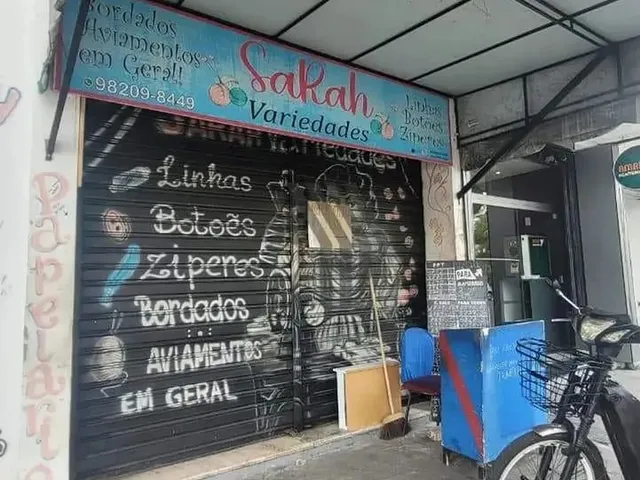 Bordados
Aviamentos
em Geral!
98209-8449
SaRah
Variedades
Linhas
Botões
Zíperes
Linhas
Botoẽs
Ziperes
Bordados
AVIAMENTOS
EM GERAL
Papelaria
PARA